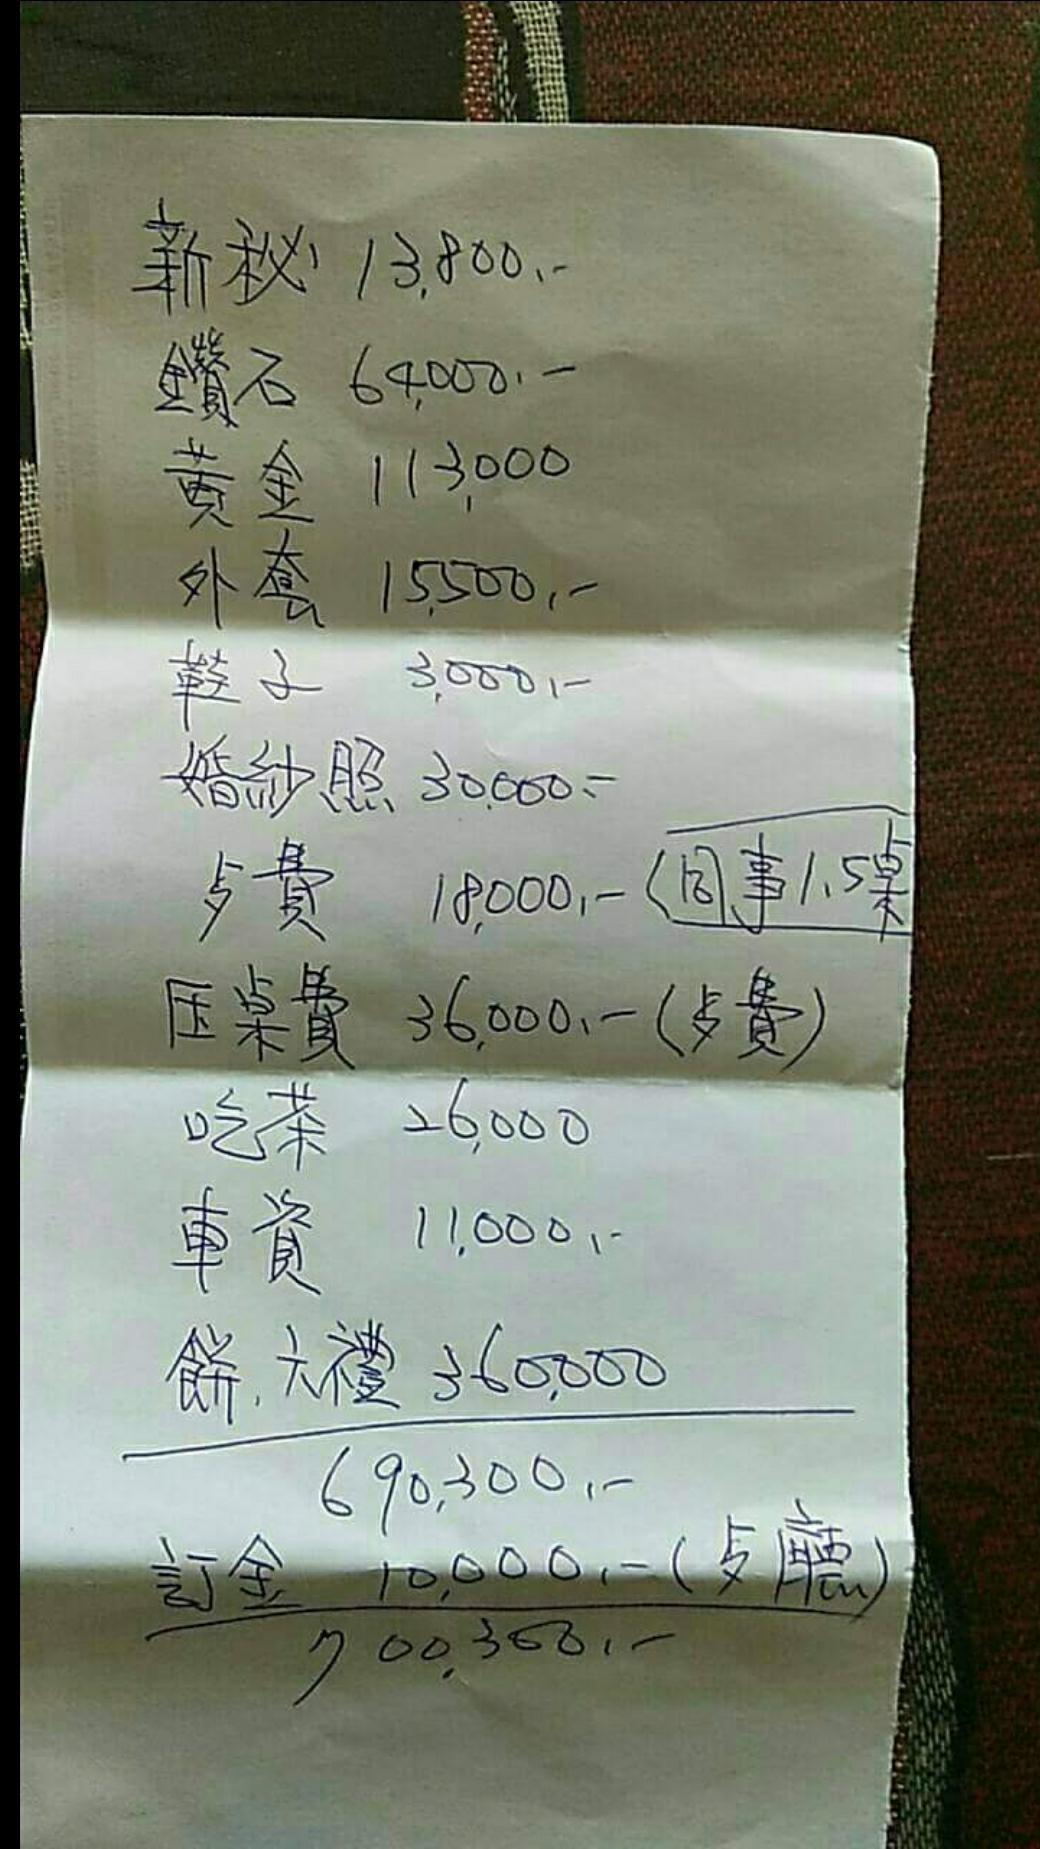 新秘 13,800.-
鑽石 64,000.-
黃金 113,000
外套 15,500.-
鞋子 3,000.-
婚紗照 30,000.-
費 18,000.- (同事1.5桌
压桌費 36,000.- (費)
吃茶 26,000
車資 11,000.-
餅.六禮 360,000
690,300.-
訂金 10,000.- (廳)
700,300.-